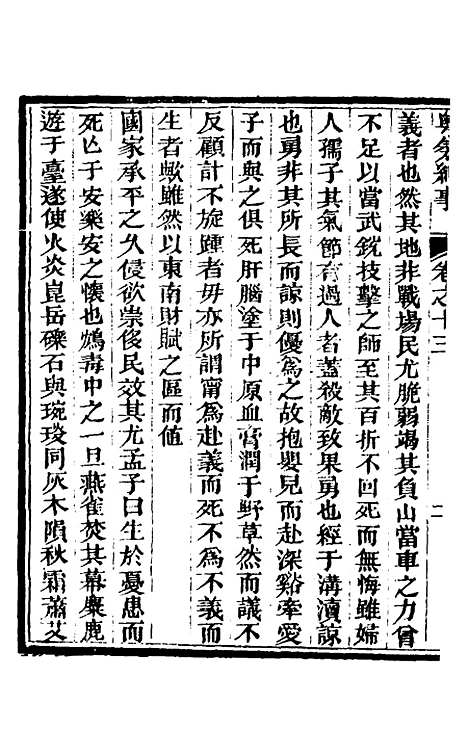 粤氛紀事
卷之十三
二
義者也然其地非戰場民尤脆弱竭其負山當車之力曾
不足以當武銳技擊之師至其百折不回死而無悔雖婦
人孺子其氣節有過人者蓋殺敵致果勇也經于溝瀆諒
也勇非其所長而諒則優爲之故抱嬰兒而赴深谿牽愛
子而與之俱死肝腦塗于中原血膏潤于野草然而議不
反顧計不旋踵者毋亦所謂甯爲赴義而死不爲不義而
生者歟雖然以東南財賦之區而値
國家承平之久侵欲崇侈民效其尤孟子曰生於憂患而
死亾于安樂安之懷也鴆毒中之一旦燕雀焚其幕麋鹿
遊于臺遂使火炎崑岳礫石與琬琰同灰木隕秋霜蕭艾